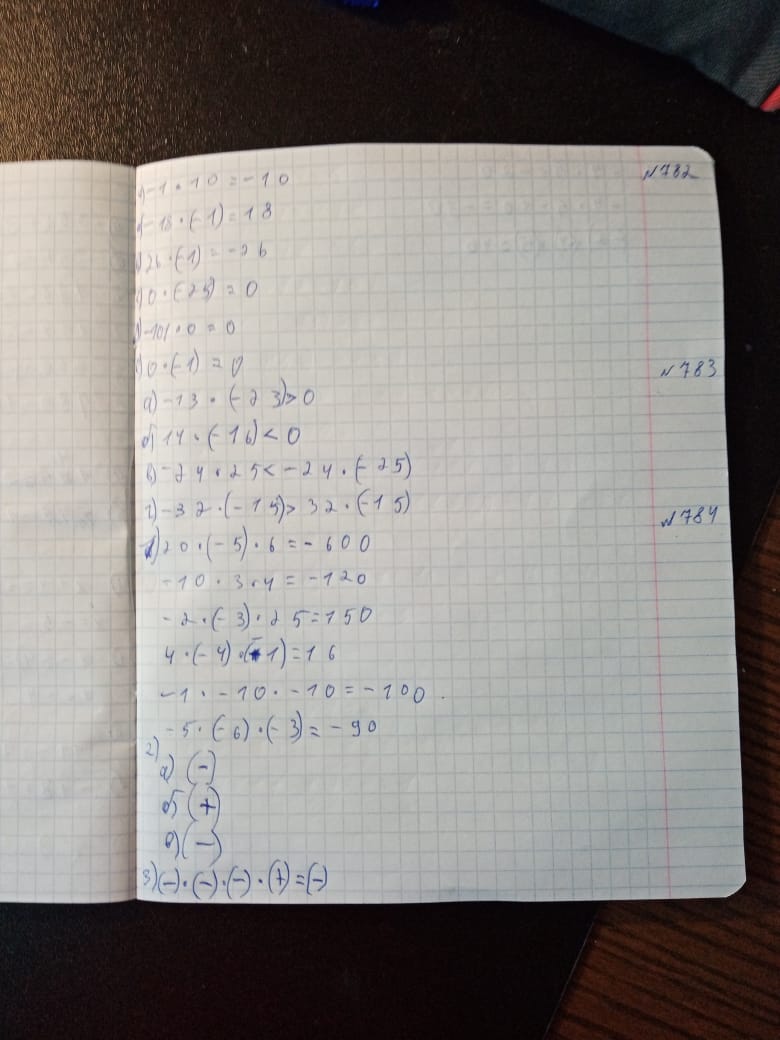 а) -1 · 10 = -10
№782
б) -18 · (-1) = 18
в) 26 · (-1) = -26
г) 0 · (-25) = 0
д) -101 · 0 = 0
е) 0 · (-1) = 0
№783
а) -13 · (-23) > 0
б) 14 · (-16) < 0
в) -24 · 25 < -24 · (-25)
г) -32 · (-15) > 32 · (-15)
№784
1) 20 · (-5) · 6 = -600
-10 · 3 · 4 = -120
-2 · (-3) · 25 = 150
4 · (-4) · (-1) = 16
-1 · -10 · -10 = -100.
-5 · (-6) · (-3) = -90
2)
а) (-)
б) (+)
в) (-)
3) (-) · (-) · (-) · (+) = (-)